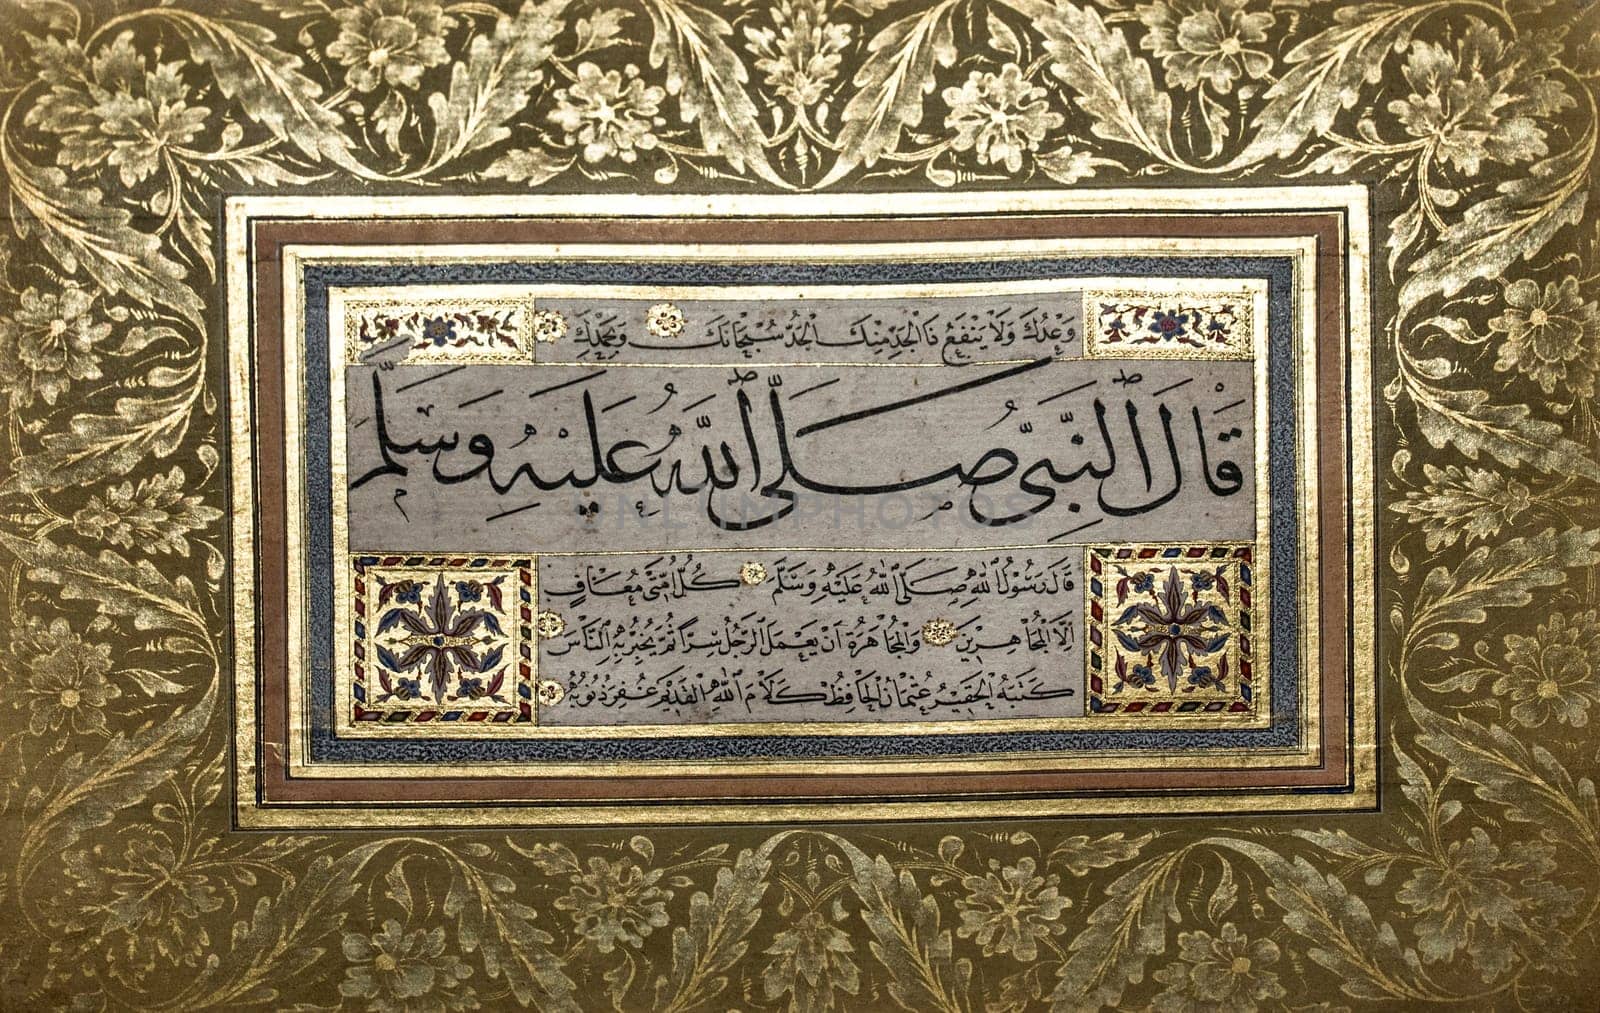 وَعْدُكَ وَلَا يَنْفَعُ ذَا الْجَدِّ مِنْكَ الْجَدُّ سُبْحَانَكَ وَبِحَمْدِكَ
قَالَ النَّبِيُّ صَلَّى اللّٰهُ عَلَيْهِ وَسَلَّمَ
قَالَ رَسُولُ اللّٰهِ صَلَّى اللّٰهُ عَلَيْهِ وَسَلَّمَ كُلُّ اُمَّتِى مُعَافٍ
اِلَّا الْمُجَاهِرِينَ وَالْمُجَاهَرَةُ اَنْ يَعْمَلَ الرَّجُلُ سِرًّا ثُمَّ يُخْبِرُ بِهِ النَّاسَ
كَتَبَهُ الْحَقِيرُ عُثْمَانُ الْحَافِظُ كَلَامَ اللّٰهِ الْقَدِيمِ غُفِرَ ذُنُوبُهُ
UNLIMPHOTOS